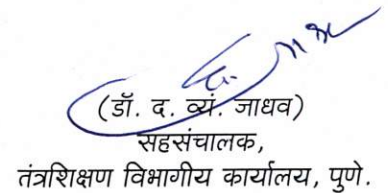 (डॉ. द. व्यं. जाधव)
सहसंचालक,
तंत्रशिक्षण विभागीय कार्यालय, पुणे.